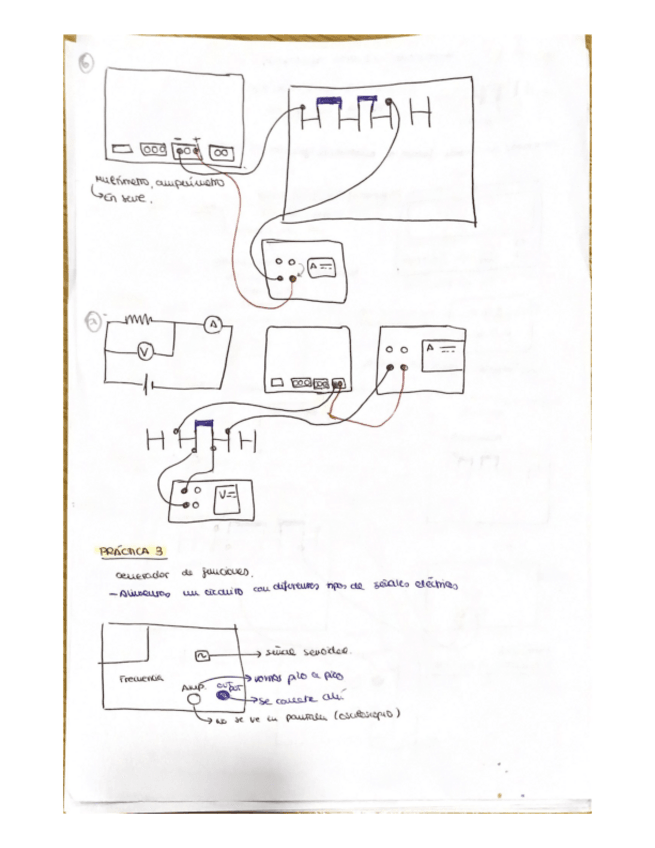 6
Multímetro, amperímetro
En serie.
A
7
A
V
A
V=
PRÁCTICA 3
Generador de funciones.
- Alimentamos un circuito con diferentes tipos de señales eléctricas
señal senoidal.
Frecuencia
voltios pico a pico
Amp.
OUTPUT
se conecta ahí
no se ve en pantalla (osciloscopio)